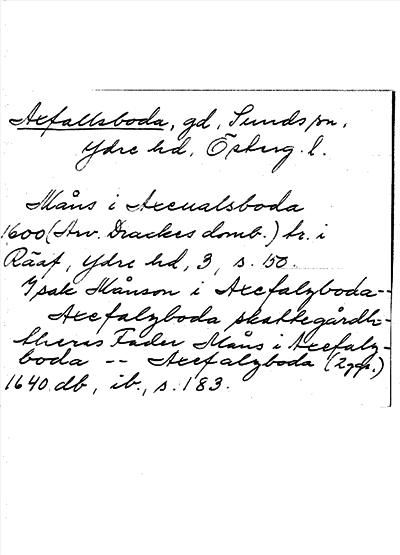 Axfallsboda, gd, Sunds sn,
Ydre hd, Österg. l.
Måns i Axeualsboda
1600 (Arv. Drackes domb.) tr. i
Rääf, Ydre hd, 3, s. 150.
Isak Månson i Axefalzboda--
Axefalzboda skattegårdh-
theras Fader Måns i Axefalz-
boda -- Axefalzboda (2 ggr.)
1640 db, ib., s. 183.